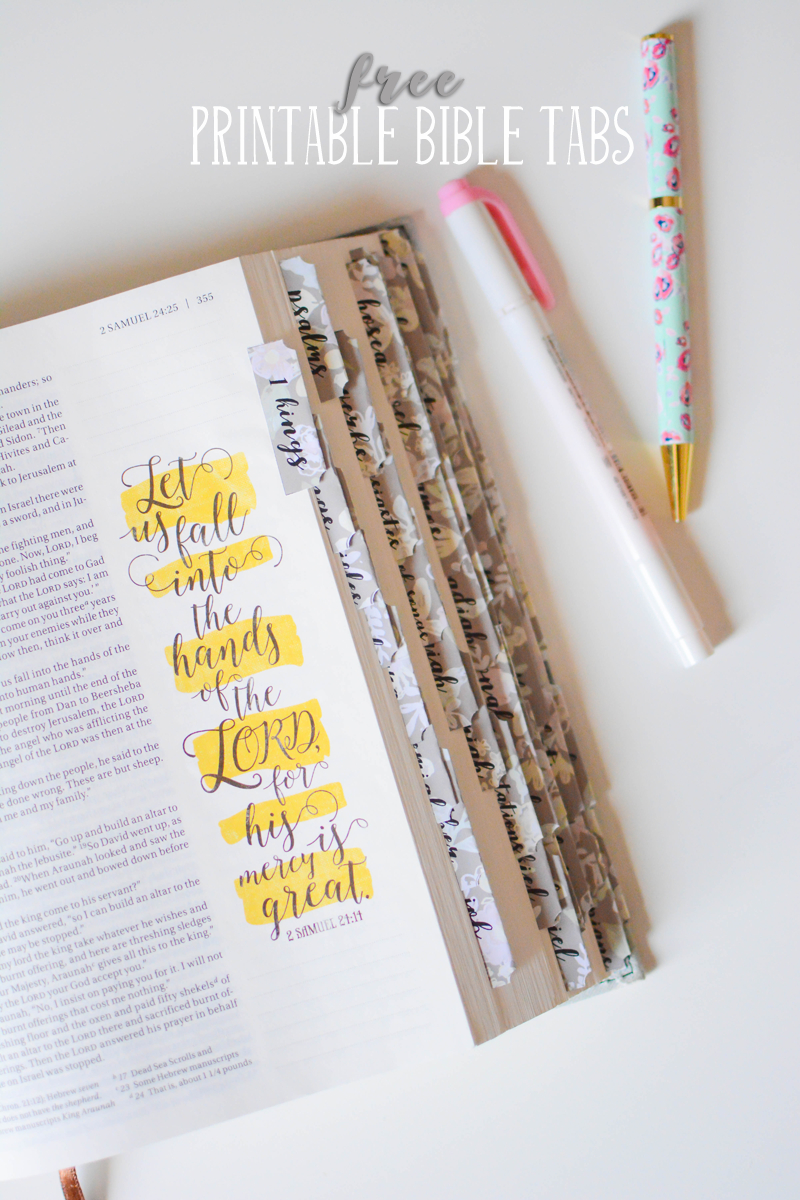 free
PRINTABLE BIBLE TABS
2 SAMUEL 24:25 | 355
manders; so
e town in the
Gilead and the
d Sidon. Then
Hivites and Ca-
k to Jerusalem at
n Israel there were
a sword, and in Ju-
he fighting men, and
one. Now, LORD, I beg
y foolish thing."
LORD had come to Gad
what the LORD says: I am
carry out against you."
come on you three years
n your enemies while they
now then, think it over and
us fall into the hands of the
nto human hands."
t morning until the end of the
people from Dan to Beersheba
to destroy Jerusalem, the LORD
the angel who was afflicting the
angel of the LORD was then at the
king down the people, he said to the
e done wrong. These are but sheep.
me and my family."
said to him, "Go up and build an altar to
nah the Jebusite." 19So David went up, as
ad. 20When Araunah looked and saw the
him, he went out and bowed down before
the king come to his servant?"
David answered, "so I can build an altar to the
may be stopped."
my lord the king take whatever he wishes and
burnt offering, and here are threshing sledges
ur Majesty, Araunah gives all this to the king."
y the LORD your God accept you."
unah, "No, I insist on paying you for it. I will not
burnt offerings that cost me nothing."
shing floor and the oxen and paid fifty shekels of
lt an altar to the LORD there and sacrificed burnt of-
erings. Then the LORD answered his prayer in behalf
e on Israel was stopped.
Hebrew seven
does not have the shepherd.
manuscripts King Araunah
17 Dead Sea Scrolls and
23 Some Hebrew manuscripts
24 That is, about 1 1/4 pounds
Let
us fall
into
the
hands
of the
LORD,
for
his
mercy is
great.
2 SAMUEL 24:14
1 kings
psalms
hosea
job